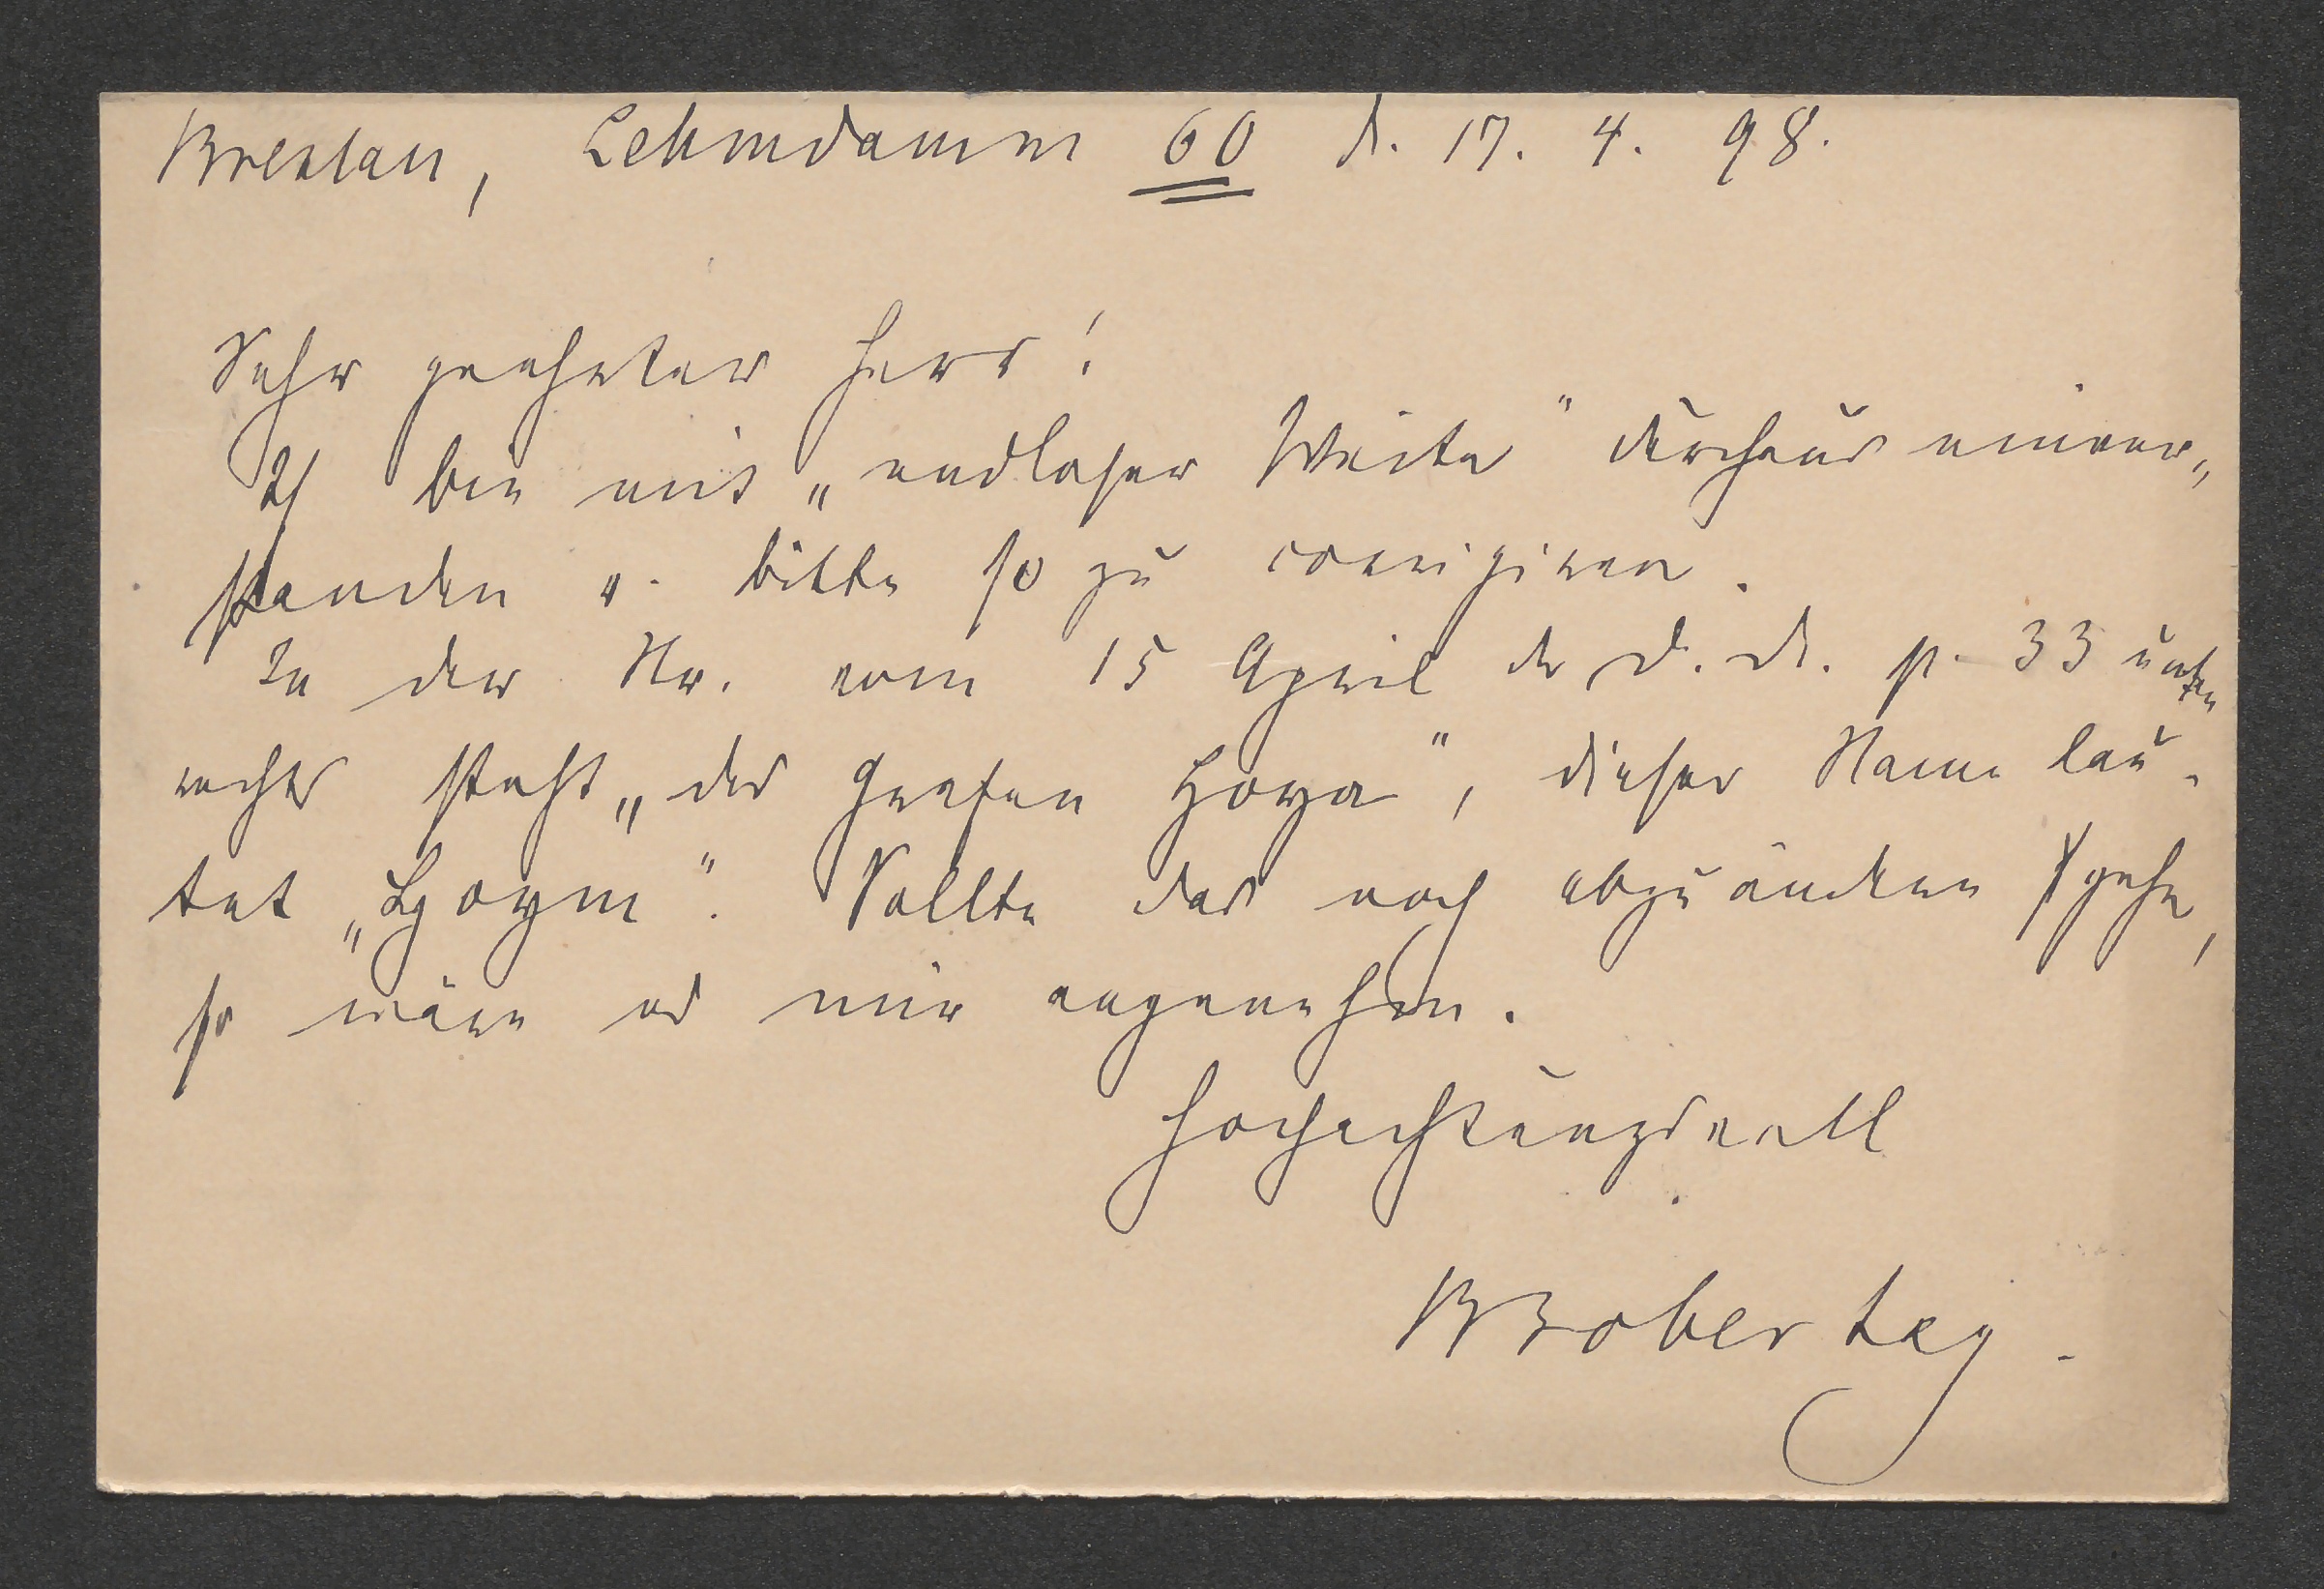 Breslau, Lehmdamm 60 d. 17. 4. 98.
Sehr geehrter Herr!
Ich bin mit „endloser Weite" durchaus einver„
standen u. bitte so zu corrigiren.
In der Nr. vom 15 April der D. D. p. 33 unten
rechts steht „des Grafen Hoya", dieser Name lau-
tet „Hoym". Sollte das noch abzuändern gehn,
so wäre es mir angenehm.
Hochachtungsvoll
BBobertag.